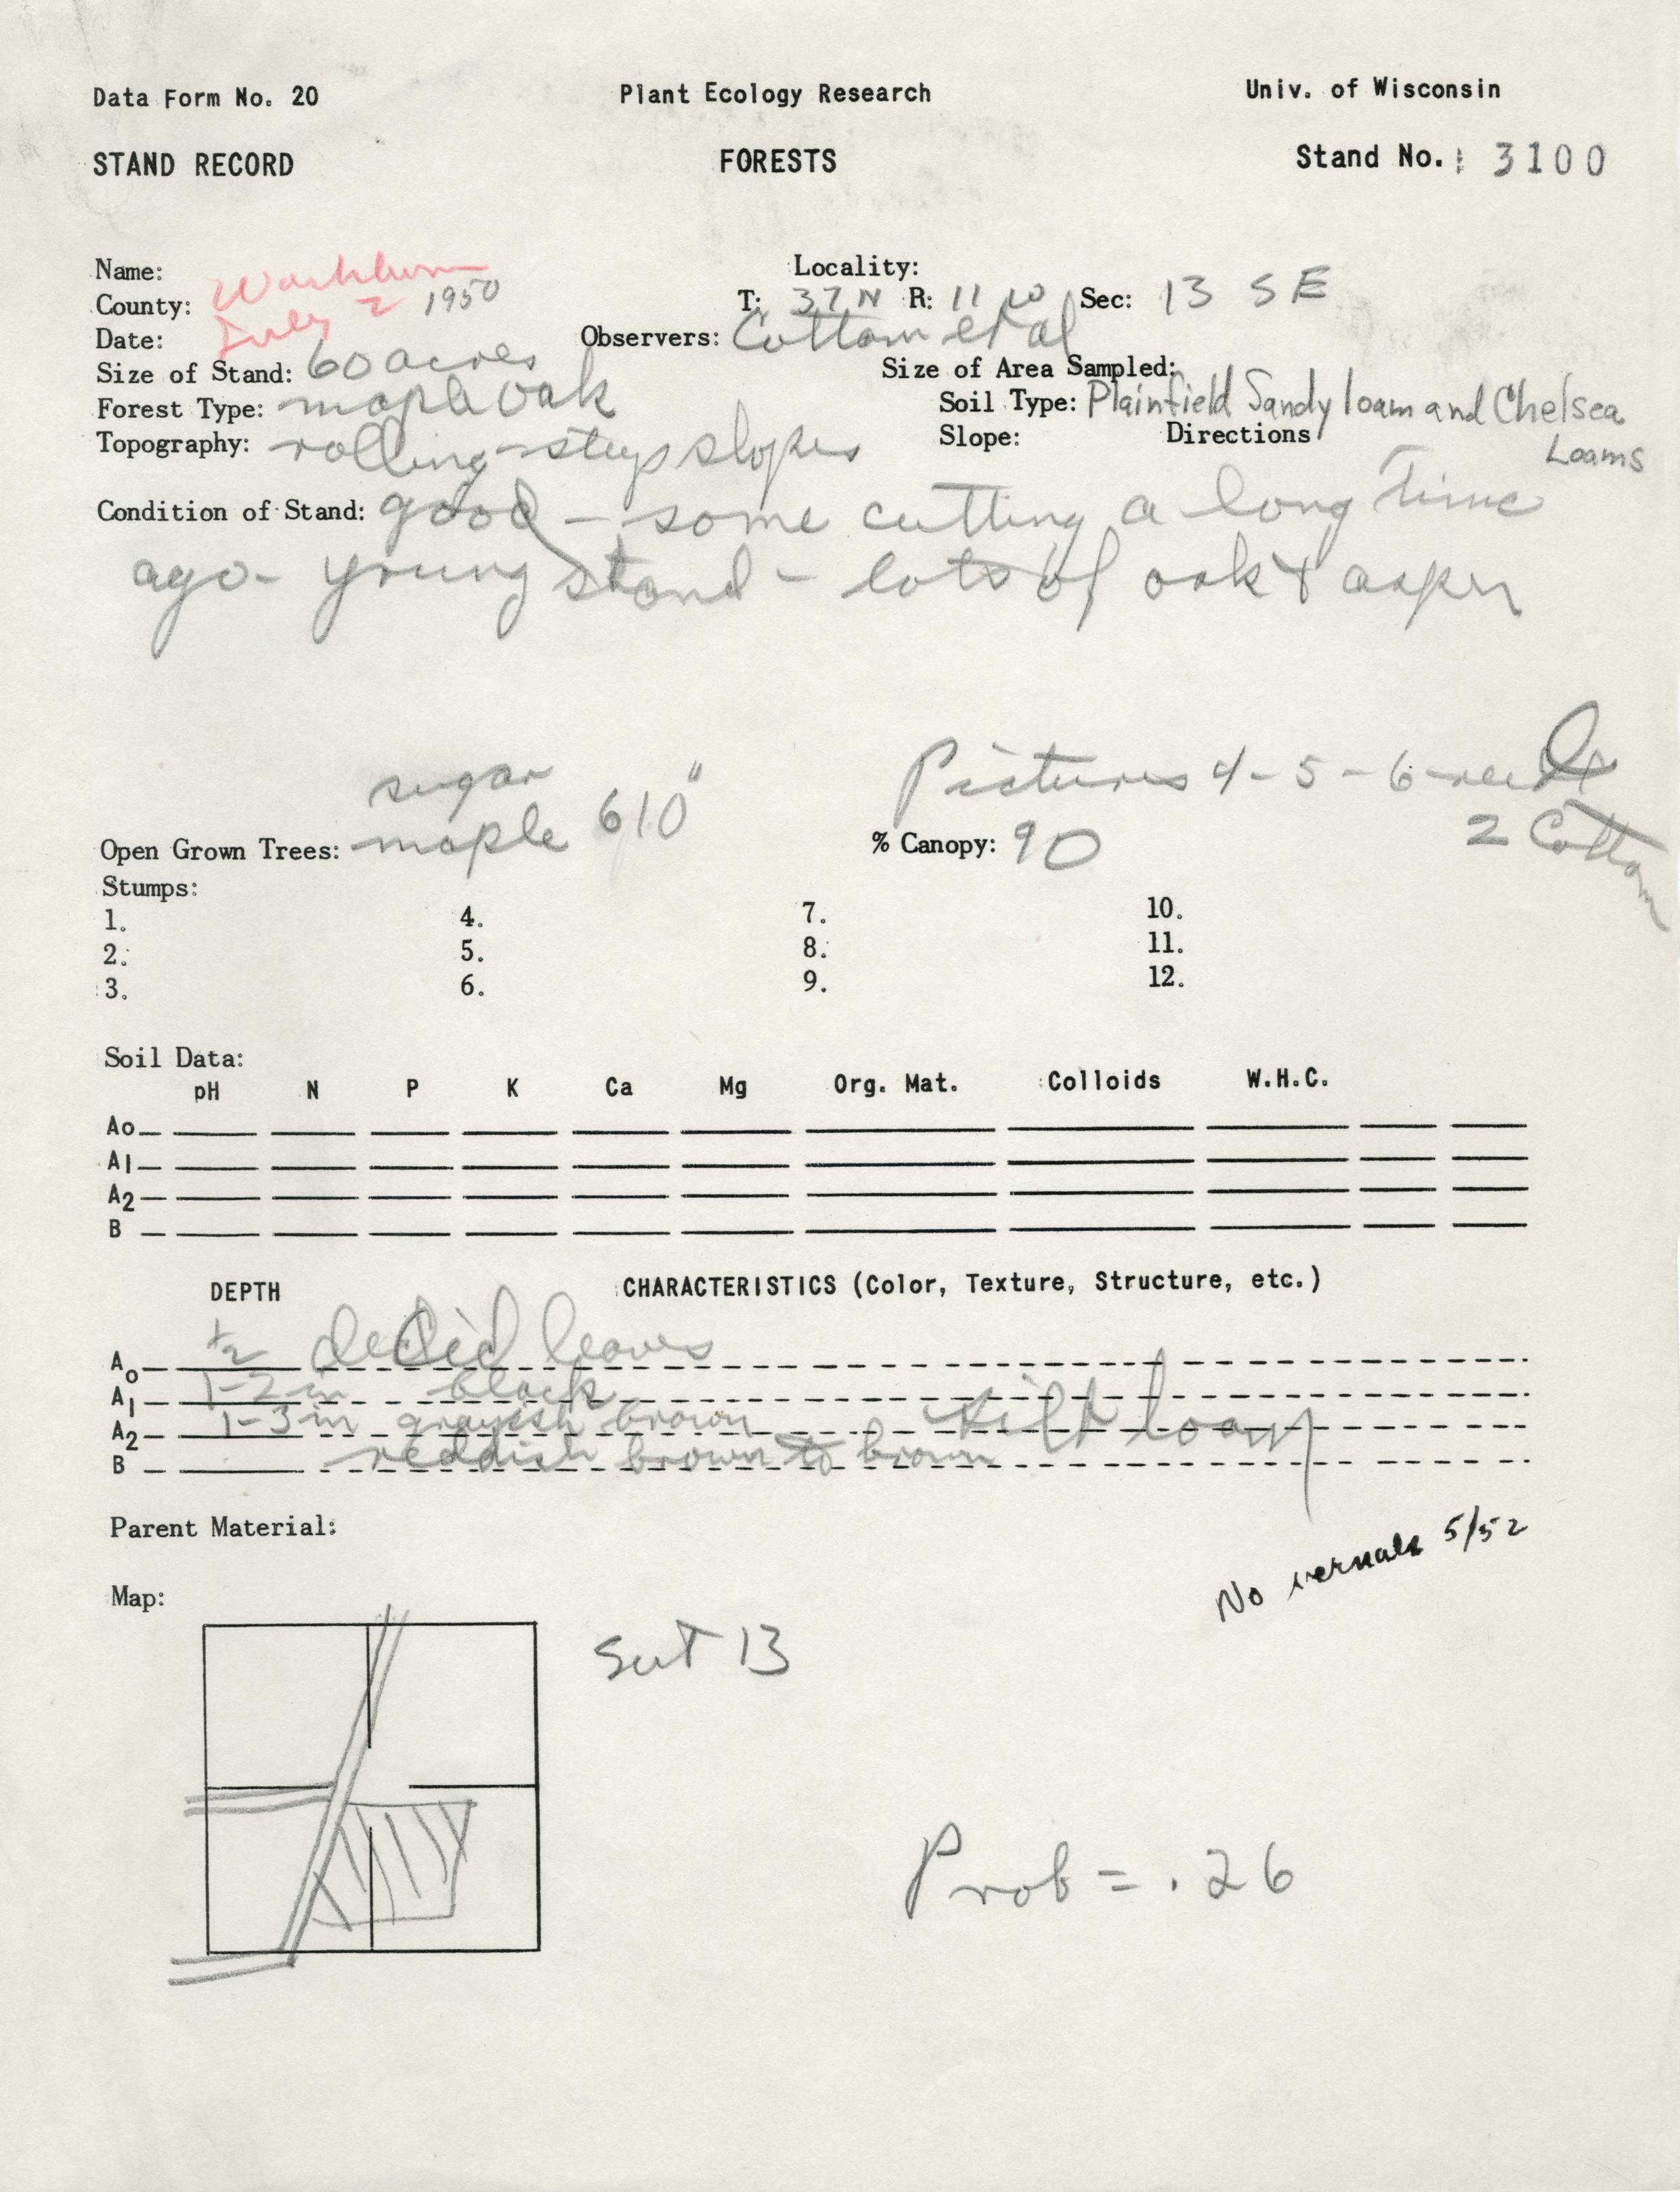 Data Form No. 20 Plant Ecology Research Univ. of Wisconsin
STAND RECORD FORESTS Stand No. 3100
Name: Locality:
County: Washburn T: 37 N R: 11 W Sec: 13 SE
Date: July 2 1950 Observers: Cottam et al
Size of Stand: 60 acres Size of Area Sampled:
Forest Type: maple oak Soil Type: Plainfield Sandy loam and Chelsea
Loams
Topography: rolling - steep slopes Slope: Directions
Condition of Stand: good - some cutting a long time
ago - young stand - lots of oak & aspen
Pictures 4-5-6-
2 Cottam
sugar
Open Grown Trees: maple 610" % Canopy: 90
Stumps:
1. 4. 7. 10.
2. 5. 8. 11.
3. 6. 9. 12.
Soil Data:
pH N P K Ca Mg Org. Mat. Colloids W.H.C.
Ao
A1
A2
B
DEPTH CHARACTERISTICS (Color, Texture, Structure, etc.)
Ao 1/2 decid leaves
A1 1-2 in black
A2 1-3 in grayish brown silt loam
B reddish brown to brown
Parent Material:
No vernals 5/52
Map:
Sect 13
Prob = .26